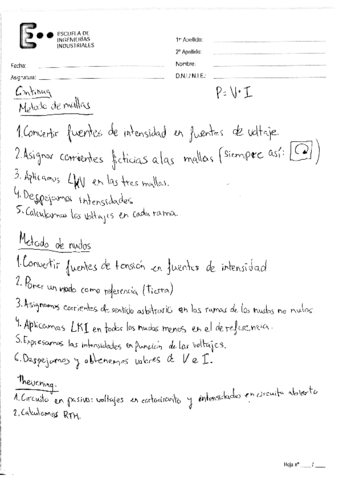 ESCUELA DE
INGENIERÍAS
INDUSTRIALES
1º Apellido:
2º Apellido:
Fecha:
Nombre:
Asignatura:
D.N.I./N.I.E.:
Continua
P=V·I
Metodo de mallas
1. Convertir fuentes de intensidad en fuentes de voltaje.
2. Asignar corrientes ficticias a las mallas (siempre así: )
3. Aplicamos LKV en las tres mallas.
4. Despejamos intensidades
5. Calculamos los voltajes en cada rama
Metodo de nudos
1. Convertir fuentes de tensión en fuentes de intensidad
2. Poner un nodo como referencia (tierra)
3. Asignamos corrientes de sentido arbitrario en las ramas de los nudos no nulos
4. Aplicamos LKI en todos los nudos menos en el de referencia.
5. Expresamos las intensidades en función de los voltajes.
6. Despejamos y obtenemos valores de V e I.
Thevening.
1. Circuito en pasivo: voltajes en cortocircuito y intensidades en circuito abierto
2. Calculamos RTH.
Hoja nº ___/___